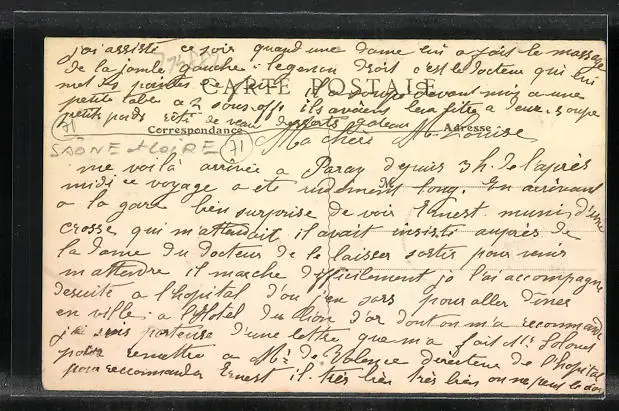 j'ai assisté ce soir quand une dame lui a fait le massage
de la jambe gauche: le genou droit c'est le docteur qui lui
met les pointes de feu. il a soupé devant moi a une
petite table a 2 sous-off. ils avaient leur litre a deux. soupe
petits pois rôti de veau desserts gateau
CARTE POSTALE
Correspondance
Adresse
71
SAONE et LOIRE
71
Ma chère M. Louise
me voilà arrivée a Paray depuis 3h. de l'après
midi ce voyage a ete rudement long. En arrivant
a la gare bien surprise de voir Ernest muni d'une
crosse qui m'attendait il avait insisté auprès de
la dame du docteur de le laisser sortir pour venir
m'attendre il marche difficilement je l'ai accompagné
desuite a l'hopital d'ou j'en sors pour aller diner
en ville a l'Hotel du Lion d'or dont on m'a recommandé
je suis porteuse d'une lettre que m'a fait
pour remettre au Mr de Valence directeur de l'hopital
pour recommander Ernest il très bien très bien on ne peut le